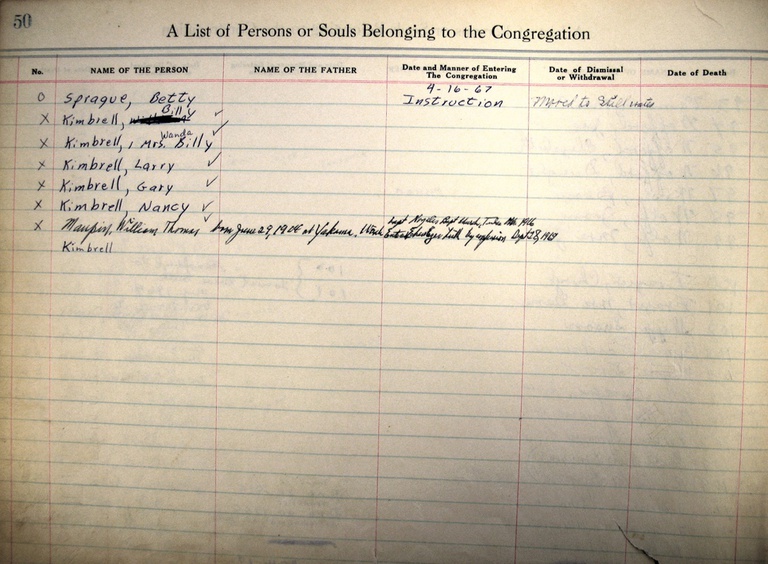 50
A List of Persons or Souls Belonging to the Congregation
No. NAME OF THE PERSON NAME OF THE FATHER Date and Manner of Entering The Congregation Date of Dismissal or Withdrawal Date of Death
4-16-67
O Sprague, Betty Instruction Moved to Stillwater
Billy
X Kimbrell, ✓
Wanda
X Kimbrell, Mrs. Billy ✓
X Kimbrell, Larry ✓
X Kimbrell, Gary ✓
X Kimbrell, Nancy ✓
X Maupin, William Thomas born June 29, 1904 at Yakima, Wash
Bapt Church,
by Sept 28, 1969
Kimbrell